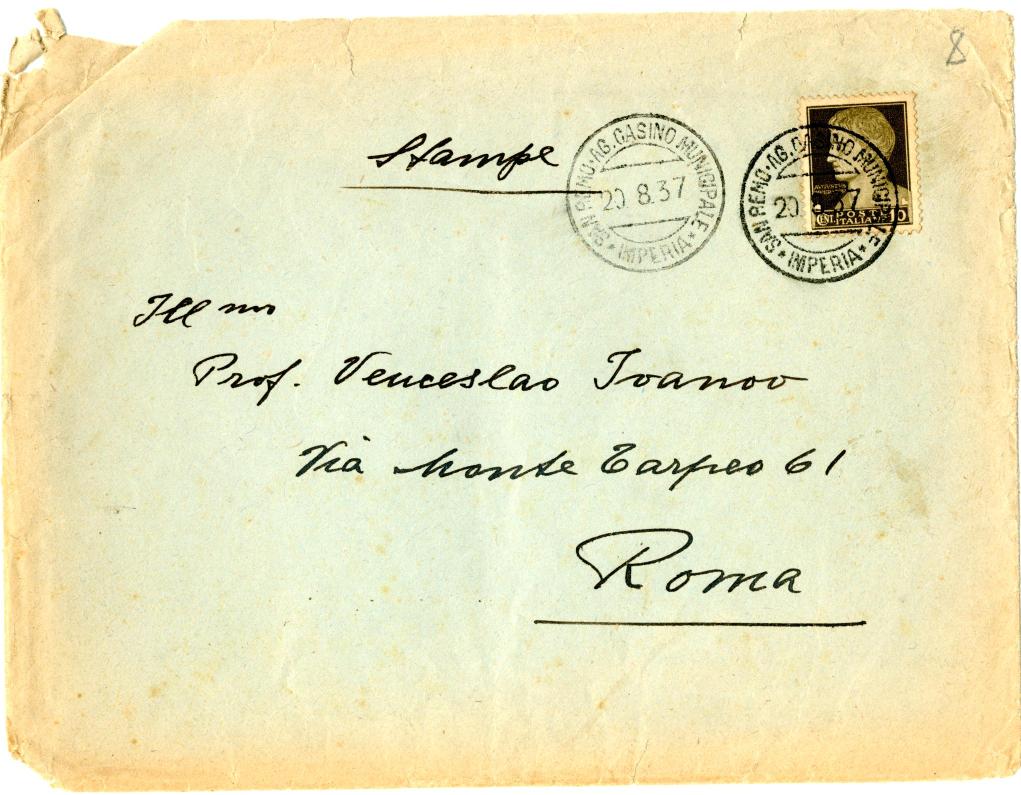 8
Stampe
SAN REMO·AG. CASINO MUNICIPALE * IMPERIA *
20 8.37
SAN REMO·AG. CASINO MUNICIPALE * IMPERIA *
20 8.37
CENT. POSTE 10
ITALIANE
Ill mo
Prof. Venceslao Ivanov
Via Monte Tarpeo 61
Roma